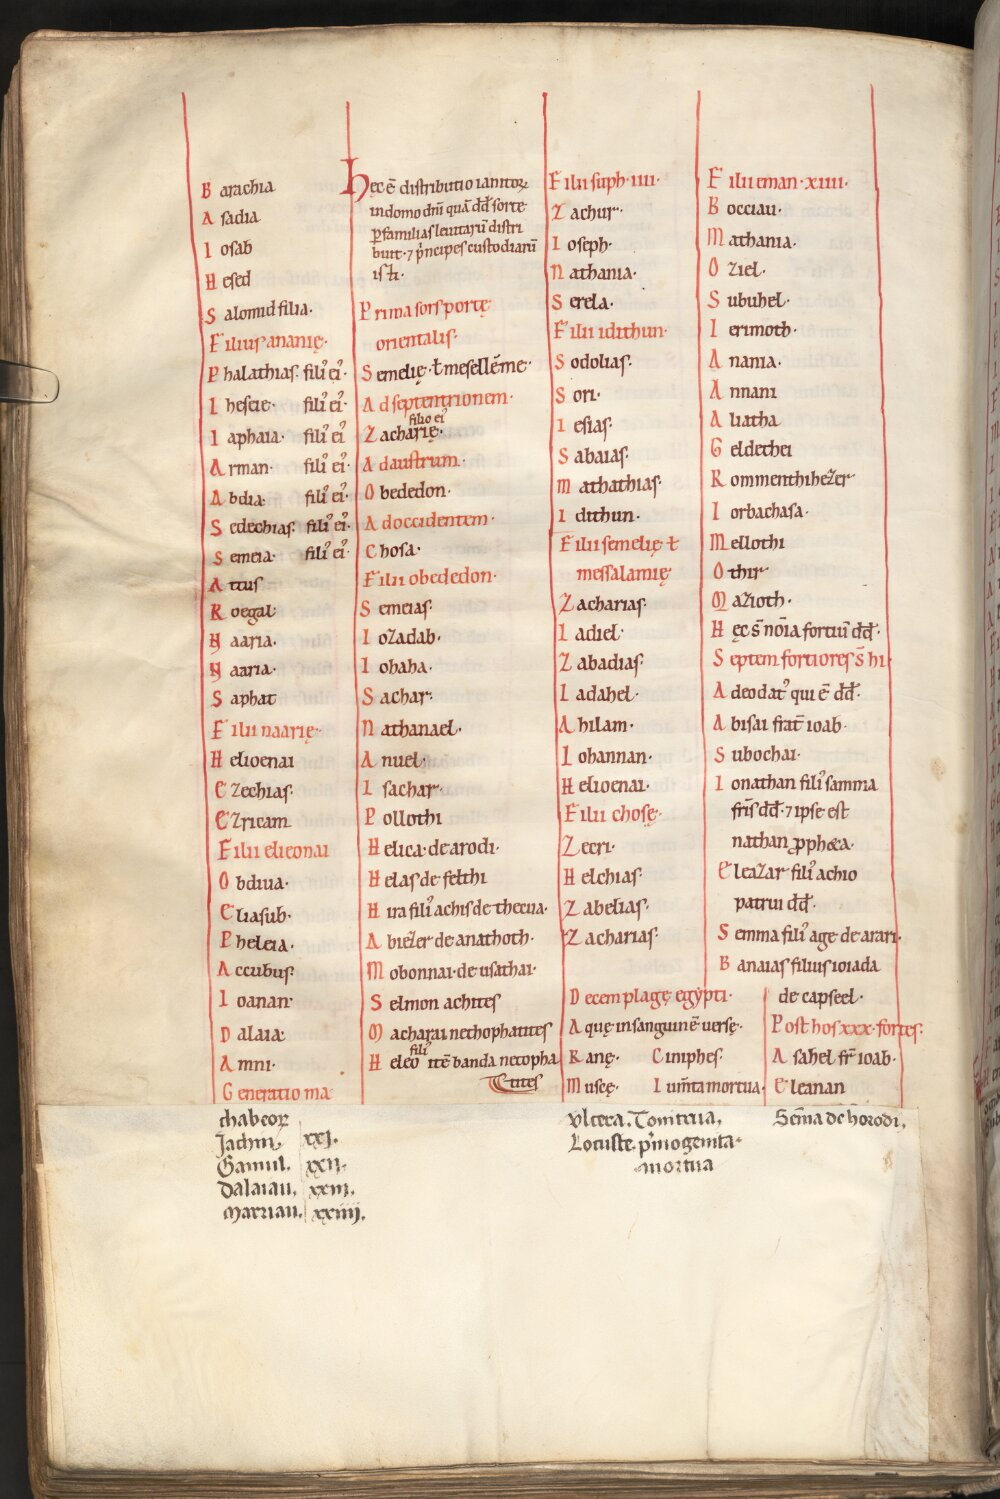 Barachia
Asadia
Iosab
Hesed
Salomid filia·
Filius ananię·
Phalathias· fili᾿ ei᾿·
Iheseie· fili᾿ ei᾿·
Iaphaia· fili᾿ ei᾿
Arman· fili᾿ ei᾿·
Abdia· fili᾿ ei᾿·
Sedechias· fili᾿ ei᾿·
Semeia· fili᾿ ei᾿·
Attus
Roegal
Naaria·
Naaria·
Saphat
Filii naarię·
Helioenai
Ezechias·
Ezricam
Filii elieonai
Obduia·
Eliasub·
Pheleia·
Accubus·
Ioanan·
Dalaia·
Amni·
Generatio ma
chabeoꝝ
Jachin, xxj.
Gamul. xxij.
Dalaiau, xxiij.
Marziau. xxiiij.
Hęc ē distributio ianitoꝝ
in domo dn̄i quā dd̄ sorte
ꝑ familias leuitarū distri
buit· ⁊ p̄ncipes custodiarū
isti·
Prima sors portę
orientalis·
Semelię· ł mesellēme·
Ad septentrionem·
filio ei᾿
Zacharię·
Ad austrum·
Obededon·
Ad occidentem·
Chosa·
Filii obededon·
Semeias·
Iozadab·
Iohaha·
Sachar·
Nathanael·
Anuel·
Isachar·
Pollothi
Helica· de arodi·
Helas de felthi
Hira fili᾿ achis de thecua·
Abiezer de anathoth·
Mobonnai· de usathai·
Selmon achites
Macharai nethophatites
fili᾿
Heleo itē banda netopha
tites
Filii suph· iiii·
Zachur·
Ioseph·
Nathania·
Serela·
Filii idithun·
Sodolias·
Sori·
Iesias·
Sabaias·
Mathathias·
Idithun·
Filii semelię ł
messalamię
Zacharias·
Iadiel·
Zabadias·
Iadahel·
Ahilam·
Iohannan·
Helioenai·
Filii chosę·
Zecri·
Helchias·
Zabelias·
Zacharias·
Decem plagę egypti·
Aquę in sanguinē uersę·
Ranę· Ciniphes·
Muscę· Iumta mortua·
Vlcera. Tonitrua,
Locuste. p̄mogenita
mortua
Filii eman· xiiii·
Bocciau·
Mathania·
Oziel·
Subuhel·
Ierimoth·
Anania·
Annani
Aliatha
Geldethei
Rommenthihezer
Iorbachasa·
Mellothi
Othir
Mazioth·
Hęc s̄ nōia fortiū dd̄·
Septem fortiores s̄ hi·
Adeodat᾿ qui ē dd̄·
Abisai frat᾿ ioab·
Subochai·
Ionathan fili᾿ samma
fr̄is dd̄· ⁊ ipse est
nathan ꝓpheta·
Eleazar fili᾿ achio
patrui dd̄·
Semma fili᾿ age· de arari·
Banaias filius ioiada
de capseel·
Post hos xxx· fortes·
Asahel fr̄ ioab·
Eleanan
Sēma de horodi,